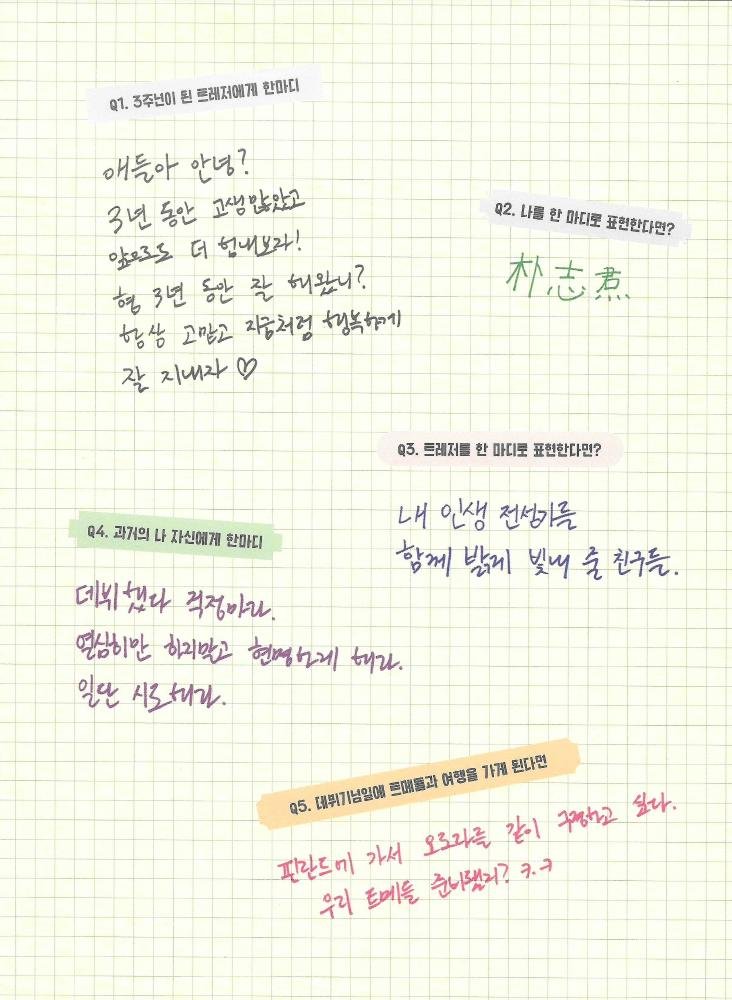 Q1. 3주년이 된 트레저에게 한마디
애들아 안녕?
3년 동안 고생많았고
앞으로도 더 힘내보자!
형 3년 동안 잘 해왔니?
항상 고맙고 지금처럼 행복하게
잘 지내자 ♡
Q2. 나를 한 마디로 표현한다면?
朴志焄
Q3. 트레저를 한 마디로 표현한다면?
내 인생 전성기를
함께 밝게 빛내 줄 친구들.
Q4. 과거의 나 자신에게 한마디
데뷔했다 걱정마라.
열심히만 하지말고 현명하게 해라.
일단 시도해라.
Q5. 데뷔기념일에 트메들과 여행을 가게 된다면
핀란드에 가서 오로라를 같이 구경하고 싶다.
우리 트메들 준비됐지? ㅋ.ㅋ